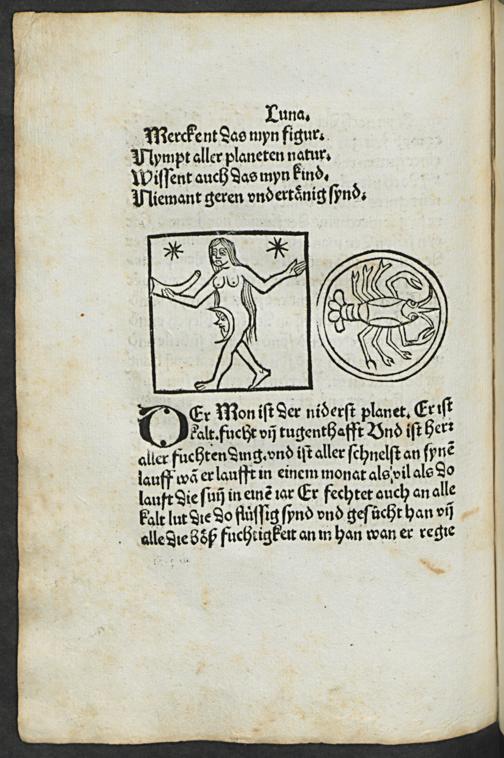 Luna.
Merckent das myn figur.
Nympt aller planeten natur.
Wissent auch das myn kind.
Niemant geren vndertånig synd.
DEr Mon ist der niderst planet. Er ist
kalt. fucht vñ tugenthafft Vnd ist herr
aller fuchten ding. vnd ist aller schnelst an synē
lauff wā er laufft in einem monat als vil als do
lauft die suñ in einē iar Er fechtet auch an alle
kalt lut die do flüssig synd vnd gesücht han vñ
alle die böß fuchtigkeit an in han wan er regie